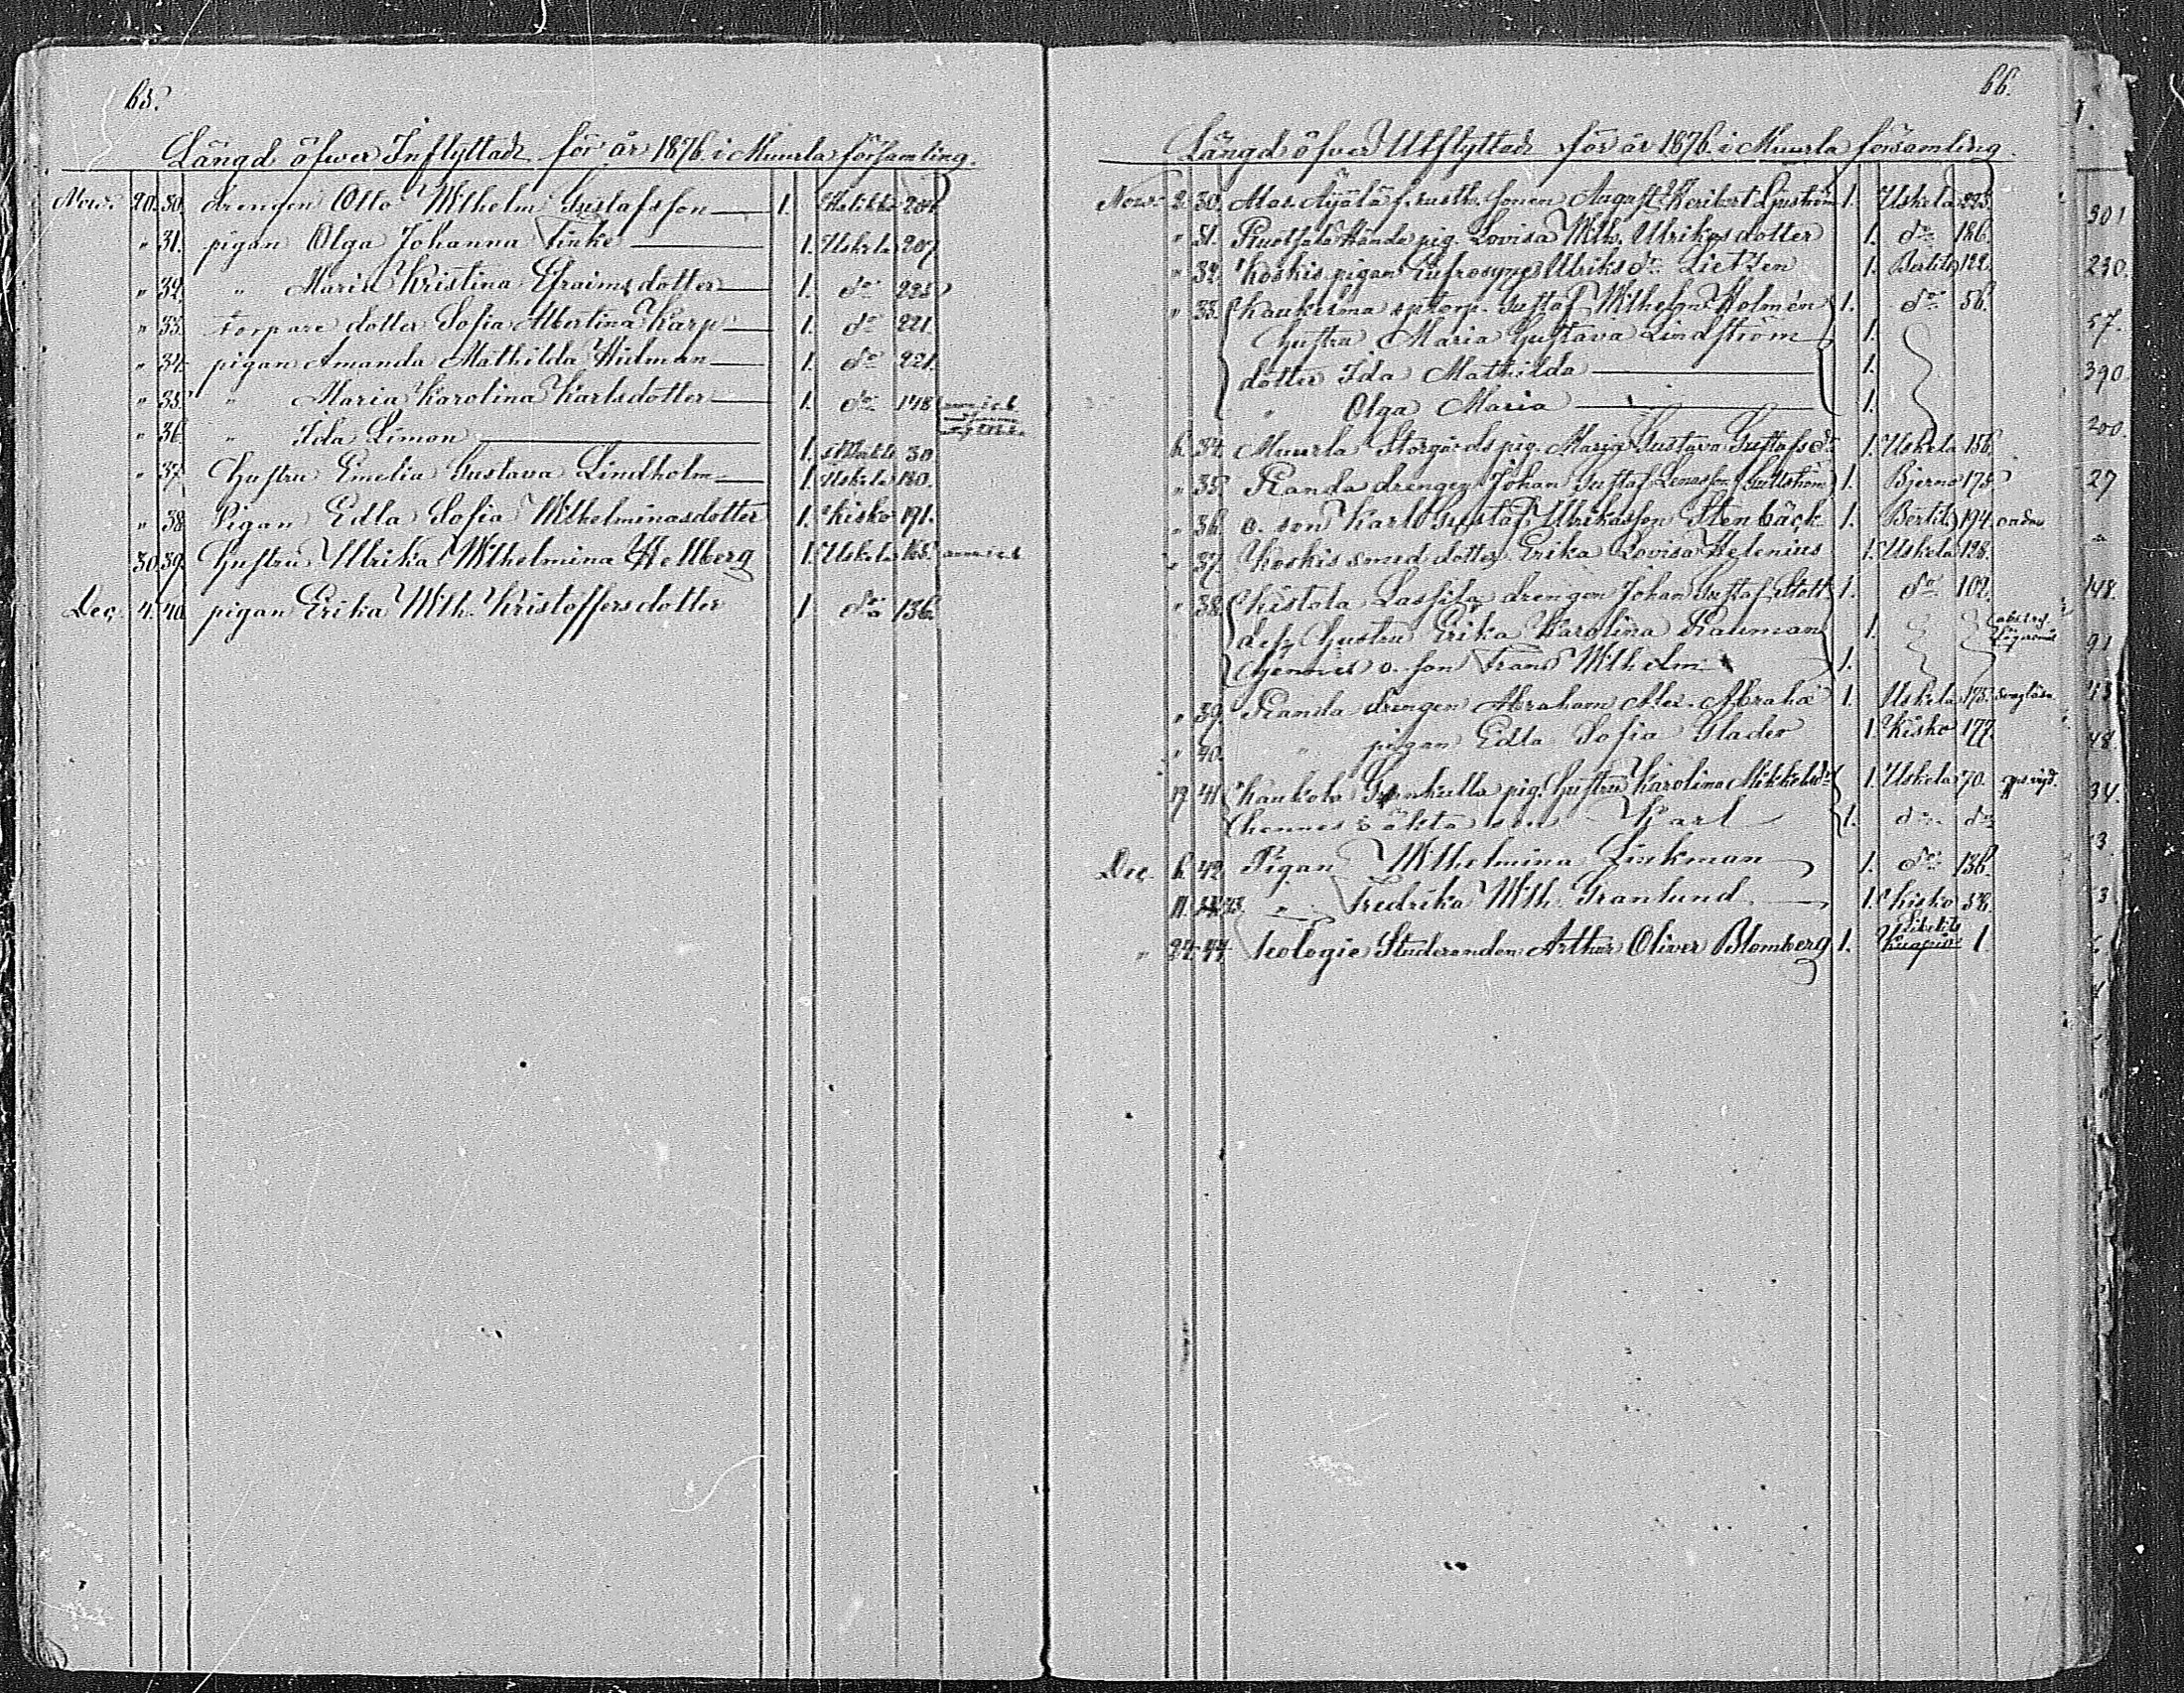 65.
Längd öfwer Inflyttade för år 1876 i Muurla församling.
Nov. 20. 30. drengen Otto Wilhelm Gustafsson 1. Halikko 204
" 31. pigan Olga Johanna Finke 1. Uskela 207
" 32. " Maria Kristina Efraimsdotter 1. do 225
" 33. torpare dotter Sofia Albertina Karp 1. do 221.
" 34. pigan Amanda Mathilda Widman 1. do 221.
" 35. " Maria Karolina Karlsdotter 1. do 148
" 36. " Ida Limon 1. 30
" 37. Hustru Emelia Gustava Lindholm 1. Uskela 180.
" 38. Pigan Edla Sofia Wilhelminasdotter 1. Kisko 191.
30. 39. Hustru Ulrika Wilhelmina Hellberg 1. Uskela 165.
Dec. 4. 40. pigan Erika Wilh. Kristoffersdotter 1. do 136.
66.
Längd öfver Utflyttade för år 1876 i Muurla församling.
Nov. 2. 30. Äijälä f. rusth. sonen August 1. Uskela 225.
" 31. pig. Lovisa Wilh. Ulrikasdotter 1. do 186.
" 32. Koskis pigan Eufrosyne Ulriksdr Lietzen 1. Bertila 122.
" 33. Kaukelma torp. Gustaf Wilhelm Holmén 1. do 56.
Hustru Maria Gustava Lindström 1.
dotter Ida Mathilda 1.
" Olga Maria 1.
6. 34. Muurla Storgårds pig. Maria Gustava Gustafsdr 1. Uskela 156.
" 35. Randa drengen Johan Gustaf Gullström 1. Bjerno 175
" 36. o. son Karl Gustaf Ulrikasson Stenbäck 1. Bertila 194.
" 37. Koskis smed dotter Erika Lovisa Helenius 1. Uskela 128.
" 38. Kistola Lassila drengen Johan Gustaf Stolt 1. do 102.
dess Hustru Erika Karolina Rauman 1.
hennes o. son Frans Wilhelm 1.
" 39. Randa drengen Abraham Alex. Abraha 1. Uskela 175.
" 40. " pigan Edla Sofia Glader 1. Kisko 177.
19. 41. Kaukola pig. Hustru Karolina Mikkelsdr 1. Uskela 70.
hennes oäkta son Karl 1. do do
Dec. 6. 42. Pigan Wilhelmina Linkman 1. do 136.
11. 43. " Fredrika Wilh. Granlund 1. Kisko 58.
" 22. 44. teologie Studeranden Arthur Oliver Blomberg 1. 1
301
230.
57.
390
200.
27
148.
91
48.
34.